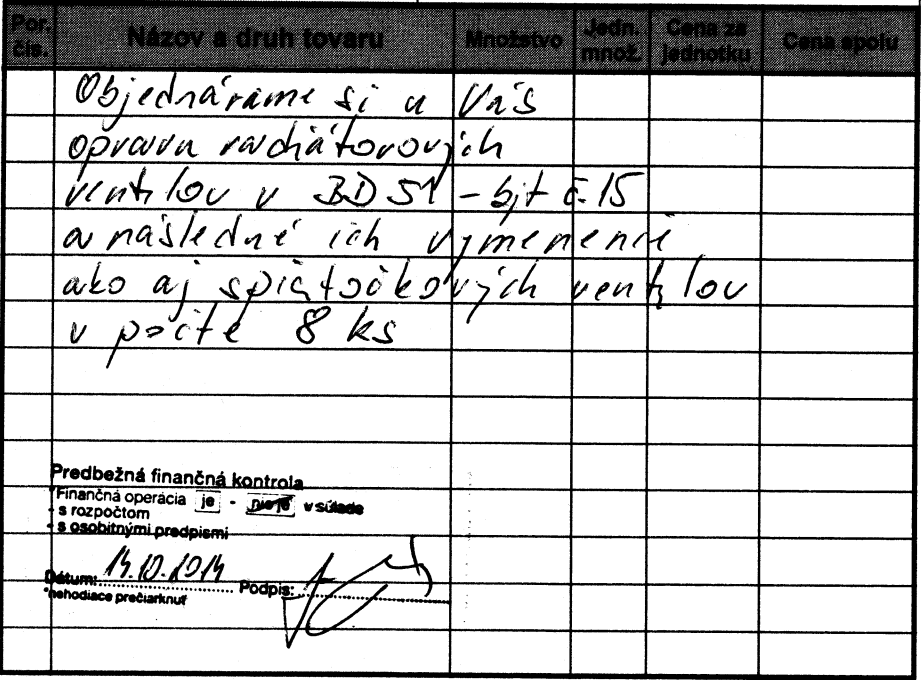 Por. čís. Názov a druh tovaru Množstvo Jedn. množ. Cena za jednotku Cena spolu
Objednávame si u Vás
opravu radiátorových
ventilov v BD 51 - byt č. 15
a následné ich vymenenie
ako aj spiatočkových ventilov
v počte 8 ks
Predbežná finančná kontrola
*Finančná operácia je - nie je v súlade
- s rozpočtom
- s osobitnými predpismi
Dátum: 14.10.2014 Podpis:
*nehodiace prečiarknuť